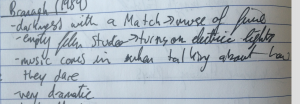 Branagh (1989)
-darkness with a Match→muse of fire
-empty film studio→turns on electric lights
-music comes in when talking about how
they dare
-very dramatic